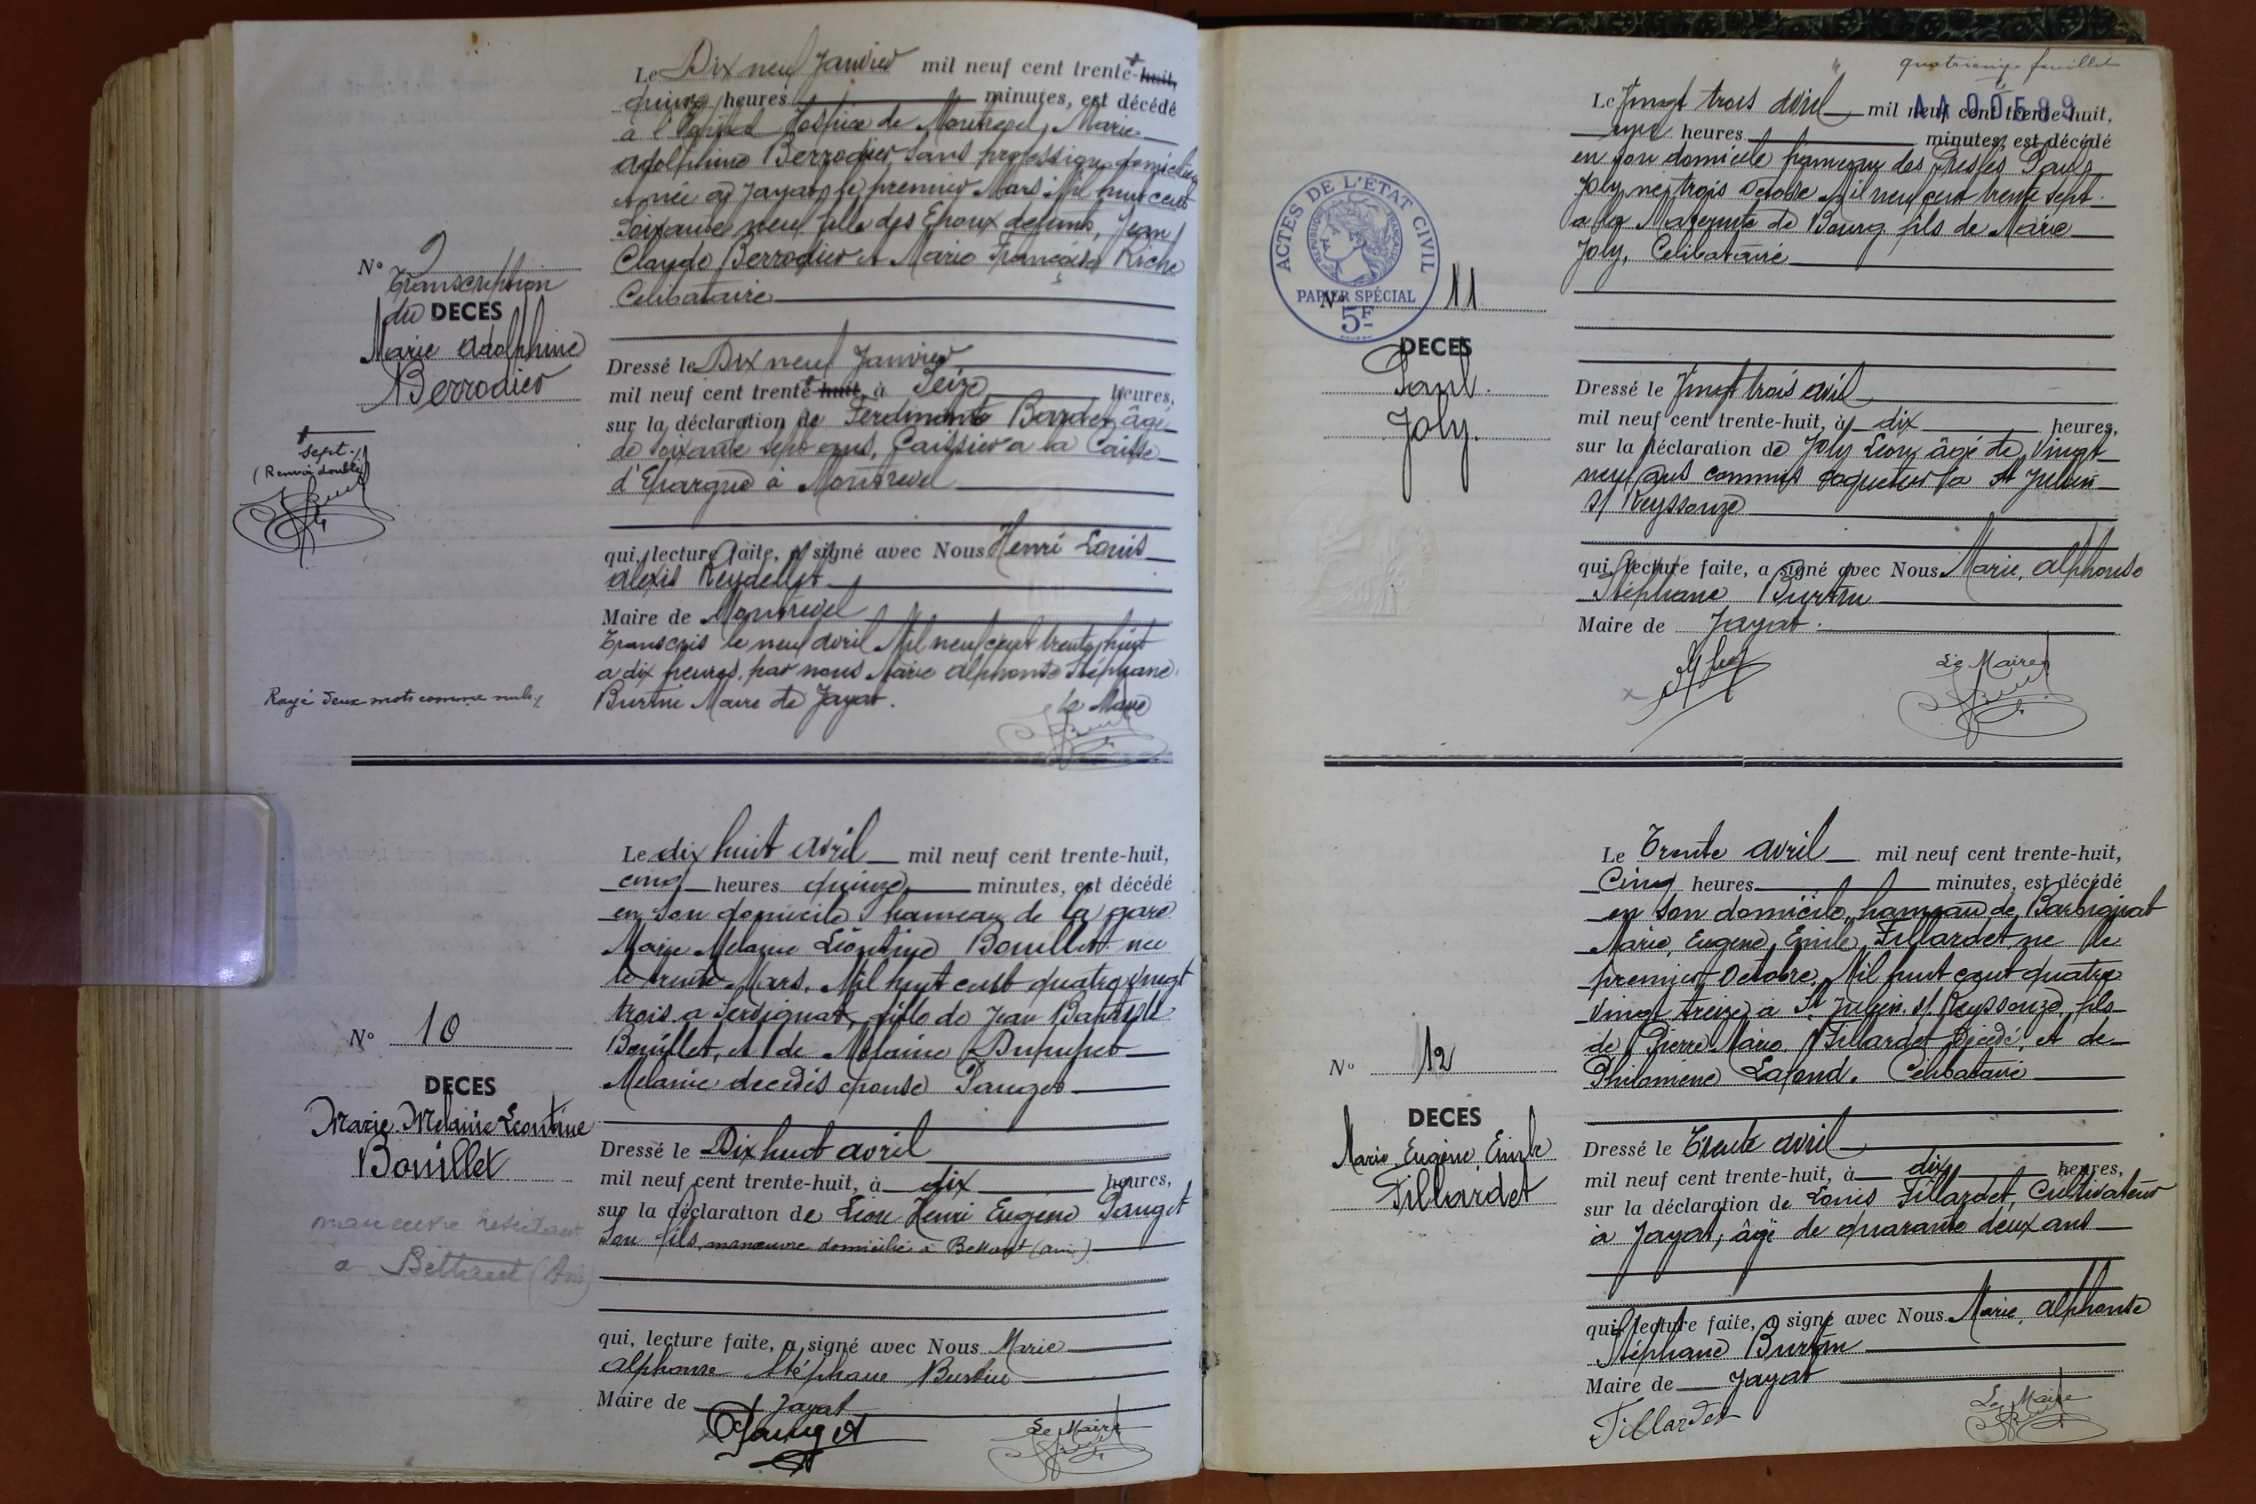 Le Dix neuf Janvier mil neuf cent trente-huit,
quinze heures minutes, est décédé
à l'Hôpital Hospice de Montrevel, Marie
Adolphine Berrodier, sans profession, domiciliée
et née à Jayat, le premier Mars Mil huit cent
soixante neuf fille des Epoux défunts, Jean
Claude Berrodier et Marie Françoise Riche
Celibataire
N° 9
Transcription
du DECES
Marie Adolphine
Berrodier
Dressé le Dix neuf Janvier
mil neuf cent trente-huit, à Seize heures,
sur la déclaration de Ferdinand Bardet, âgé
de soixante sept ans, Caissier a la Caisse
d'Epargne à Montrevel
sept.
(Renvoi double)
qui, lecture faite, a signé avec Nous Henri Louis
Alexis Reydellet
Maire de Montrevel
Transcris le neuf avril Mil neuf cent trente huit
a dix heures, par nous Marie Alphonse Stéphane
Burtin Maire de Jayat.
Le Maire
Rayé deux mots comme nuls
Le dix huit avril mil neuf cent trente-huit,
cinq heures quinze minutes, est décédé
en son domicile hameau de la gare
Marie Melanie Léontine Bouillet née
le trente Mars, Mil huit cent quatre vingt
trois a Servignat, fille de Jean Baptiste
Bouillet, et de Melanie Dupupet
Melanie decedés epouse Pauget
N° 10
DECES
Marie Melanie Leontine
Bouillet
manœuvre
a Bettant (Ain)
Dressé le Dix huit avril
mil neuf cent trente-huit, à dix heures,
sur la déclaration de Léon Henri Eugène Pauget
Son fils, manœuvre domicilié à Bettant (Ain)
qui, lecture faite, a signé avec Nous Marie
Alphonse Stéphane Burtin
Maire de Jayat
Pauget
Le Maire
quatrième feuillet
AA 00589
Le Vingt trois avril mil neuf cent trente-huit,
onze heures minutes, est décédé
en son domicile hameau des Paul
Joly, né trois Octobre Mil neuf cent trente sept
a la Maternité de Bourg fils de Marie
Joly, Celibataire
ACTES DE L'ÉTAT CIVIL
PAPIER SPÉCIAL
5F
N° 11
DECES
Paul
Joly.
Dressé le Vingt trois avril
mil neuf cent trente-huit, à dix heures,
sur la déclaration de Joly Léon, âgé de Vingt
neuf ans commis à St Julien
s/ Reyssouze
qui, lecture faite, a signé avec Nous Marie, Alphonse
Stéphane Burtin
Maire de Jayat.
Le Maire
Le Trente avril mil neuf cent trente-huit,
Cinq heures minutes, est décédé
en son domicile, hameau de Barbignat
Marie, Eugène, Emile, Fillardet, né le
premier Octobre, Mil huit cent quatre
vingt treize a St Julien s/ Reyssouze, fils
de Pierre Marie Fillardet Décédé, et de
Philomene Lafond. Célibataire
N° 12
DECES
Marie, Eugène, Emile
Fillardet
Dressé le Trente avril
mil neuf cent trente-huit, à dix heures,
sur la déclaration de Louis Fillardet, Cultivateur
à Jayat, âgé de quarante deux ans
qui, lecture faite, a signé avec Nous Marie, Alphonse
Stéphane Burtin
Maire de Jayat
Fillardet
Le Maire